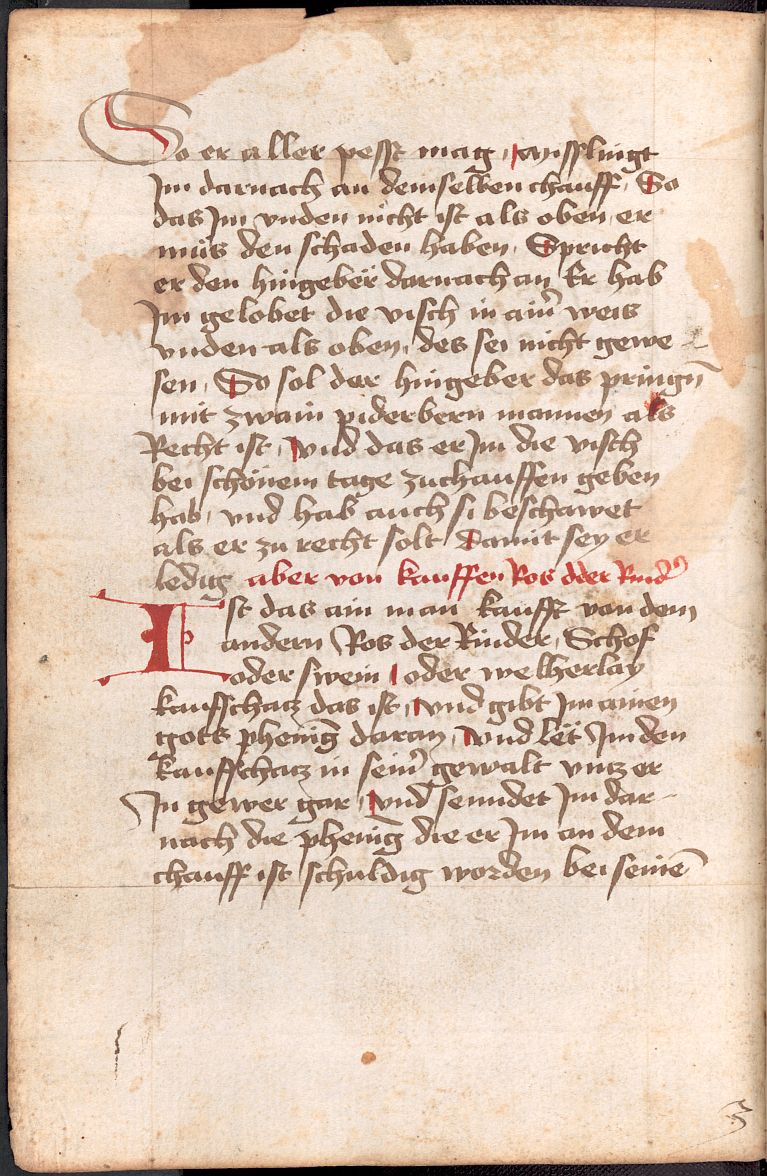 So er aller pesst mag, Misslingt
Jm darnach an demselben chauff, So
das Jm vnden nicht ist als oben, er
müs den schaden haben, Spricht
er den hingeber darnach an Er hab
Jm gelobet die visch in ainr weis
vnden als oben, des sei nicht gewe-
sen, So sol der hingeber das pringn
mit zwain piderbern mannen als
Recht ist, vnd das er Jm die visch
bei schönem tage zuchauffen geben
hab, vnd hab auch si beschawet
als er zu recht solt Damit sey er
ledig aber von kauffen Ros oder Rindr
Ist das ain man kaufft von dem
andern Ros der Rinder, Schof
oder swein, oder welherlay
kaufschacz das ist, vnd gibt Jm ainen
gots phening daran, vnd lët Jm den
kaufschacz in seinr gewalt vncz er
Jn gewer gar, vnd senndet Jm dar-
nach die phening die er Jm an dem
chauff ist schuldig worden bei seinē